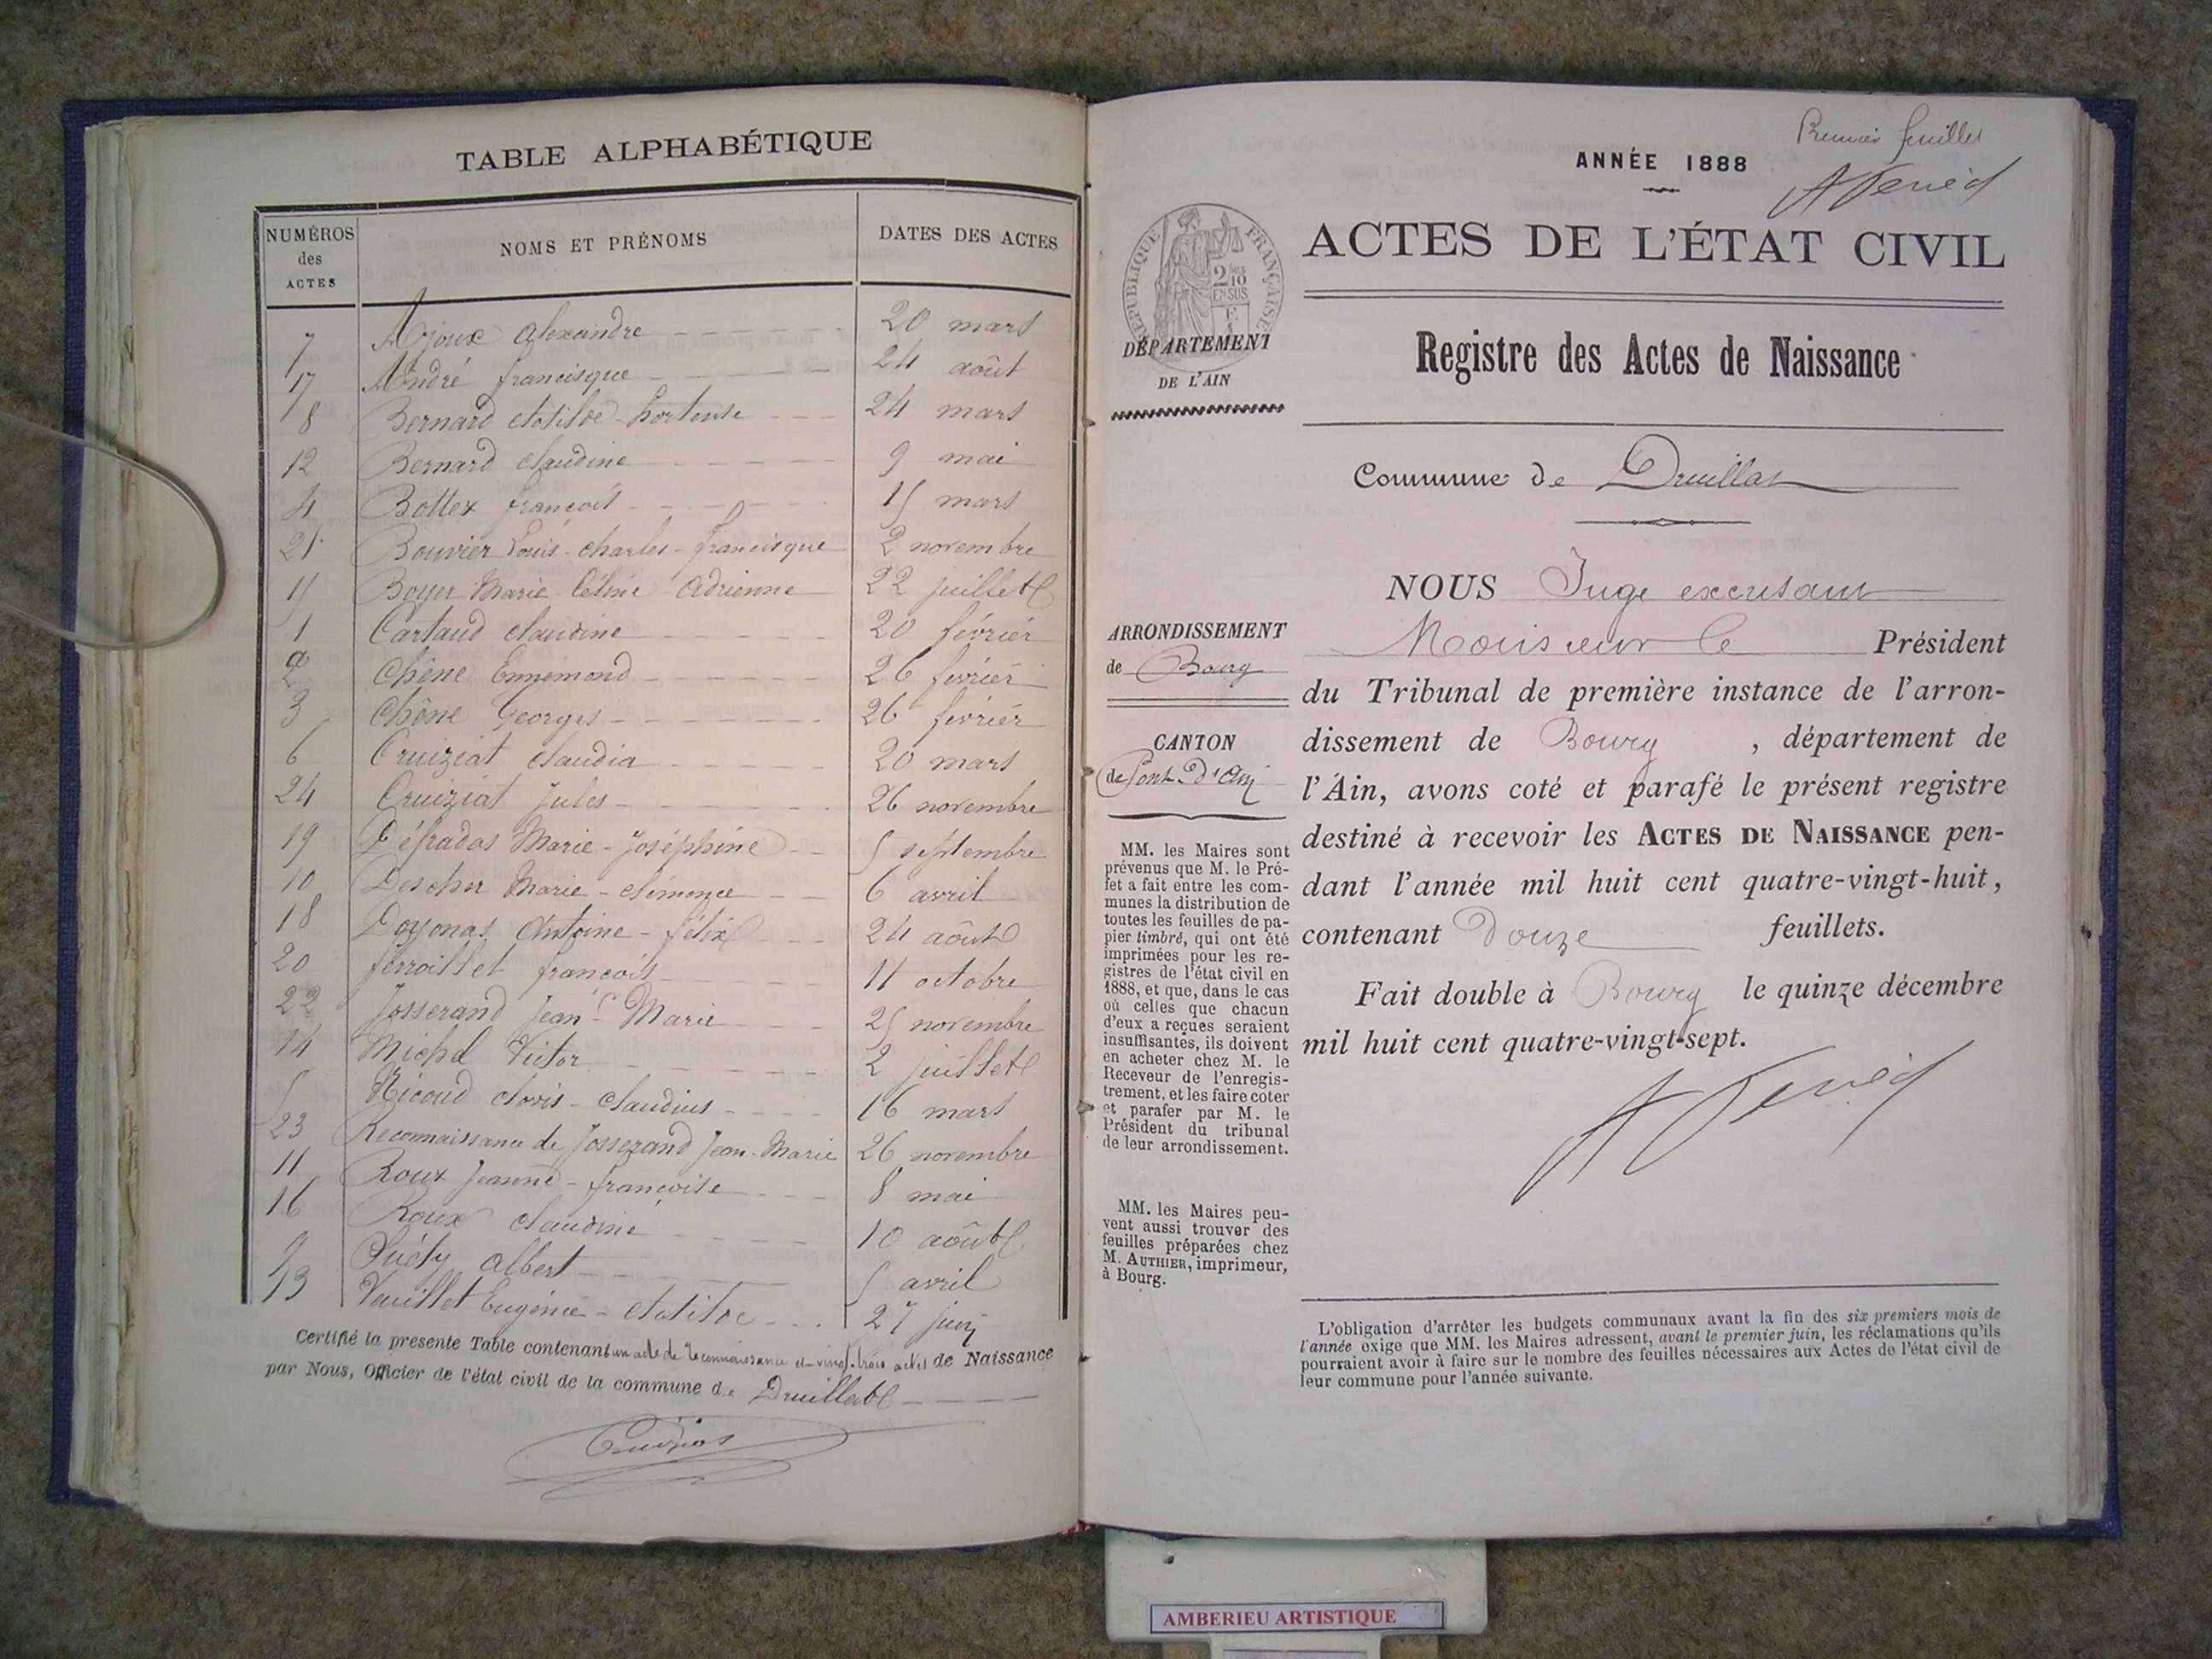 TABLE ALPHABÉTIQUE
NUMÉROS des ACTES NOMS ET PRÉNOMS DATES DES ACTES
7 Ajoux Alexandre 20 mars
17 André francisque 24 août
8 Bernard Clotilde - hortense 24 mars
12 Bernard Claudine 9 mai
4 Bottex françois 15 mars
21 Bouvier Louis - Charles - francisque 2 novembre
15 Boyer Marie Céline Adrienne 22 juillet
1 Cartaud Claudine 20 février
2 Chêne Ennemond 26 février
3 Chêne Georges 26 février
6 Cruiziat Claudia 20 mars
24 Cruiziat Jules 26 novembre
19 Défradas Marie - Joséphine 5 septembre
10 Descher Marie - Clémence 6 avril
18 Doyonas Antoine - félix 24 août
20 ferroillet françois 11 octobre
22 Josserand Jean - Marie 25 novembre
14 Michel Victor 2 juillet
5 Nicoud Clovis - Claudius 16 mars
23 Reconnaissance de Josserand Jean - Marie 26 novembre
11 Roux Jeanne - françoise 8 mai
16 Roux Claudine 10 août
9 Albert 5 avril
13 Veuillet Eugénie - Clotilde 27 juin
Certifié la présente Table contenant un acte de reconnaissance et vingt-trois actes de Naissance
par Nous, Officier de l'état civil de la commune de Druillat
Premier feuillet
ANNÉE 1888
ACTES DE L'ÉTAT CIVIL
RÉPUBLIQUE FRANÇAISE
2/10 EN SUS
DÉPARTEMENT
DE L'AIN
Registre des Actes de Naissance
Commune de Druillat
ARRONDISSEMENT
de Bourg
CANTON
de Pont-d'Ain
MM. les Maires sont
prévenus que M. le Pré-
fet a fait entre les com-
munes la distribution de
toutes les feuilles de pa-
pier timbré, qui ont été
imprimées pour les re-
gistres de l'état civil en
1888, et que, dans le cas
où celles que chacun
d'eux a reçues seraient
insuffisantes, ils doivent
en acheter chez M. le
Receveur de l'enregis-
trement, et les faire coter
et parafer par M. le
Président du tribunal
de leur arrondissement.
MM. les Maires peu-
vent aussi trouver des
feuilles préparées chez
M. AUTHIER, imprimeur,
à Bourg.
NOUS Juge excusant
Monsieur le Président
du Tribunal de première instance de l'arron-
dissement de Bourg, département de
l'Ain, avons coté et parafé le présent registre
destiné à recevoir les ACTES DE NAISSANCE pen-
dant l'année mil huit cent quatre-vingt-huit,
contenant Douze feuillets.
Fait double à Bourg le quinze décembre
mil huit cent quatre-vingt-sept.
L'obligation d'arrêter les budgets communaux avant la fin des six premiers mois de
l'année exige que MM. les Maires adressent, avant le premier juin, les réclamations qu'ils
pourraient avoir à faire sur le nombre des feuilles nécessaires aux Actes de l'état civil de
leur commune pour l'année suivante.
AMBERIEU ARTISTIQUE